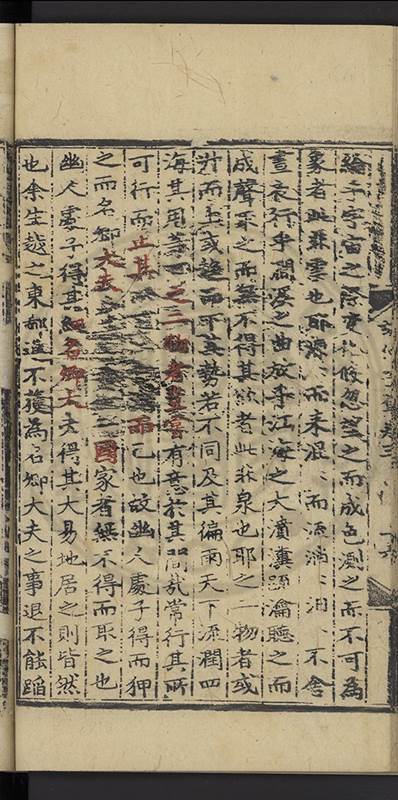 綸乎宇宙之際变化倐忽望之而成色測之而不可為
象者此非雲也耶源〻而来混〻而流涓〻汨〻不舍
晝夜行乎澗溪之曲放乎江海之大濆瀵 瀹聽之而
成聲取之而無不得其欲者此非泉也耶之二物者或
升而上或趍而下其勢若不同及其徧雨天下流潤四
海其用等 之二物者豈嘗有意於其間哉常行其所
可行而止其 而已也故幽人處子得而狎
之而名卿大夫 國家者無不得而取之也
幽人處子得其細名卿大夫得其大易地居之則皆然
也余生越之東鄙進不獲為名卿大夫之事退不能蹈